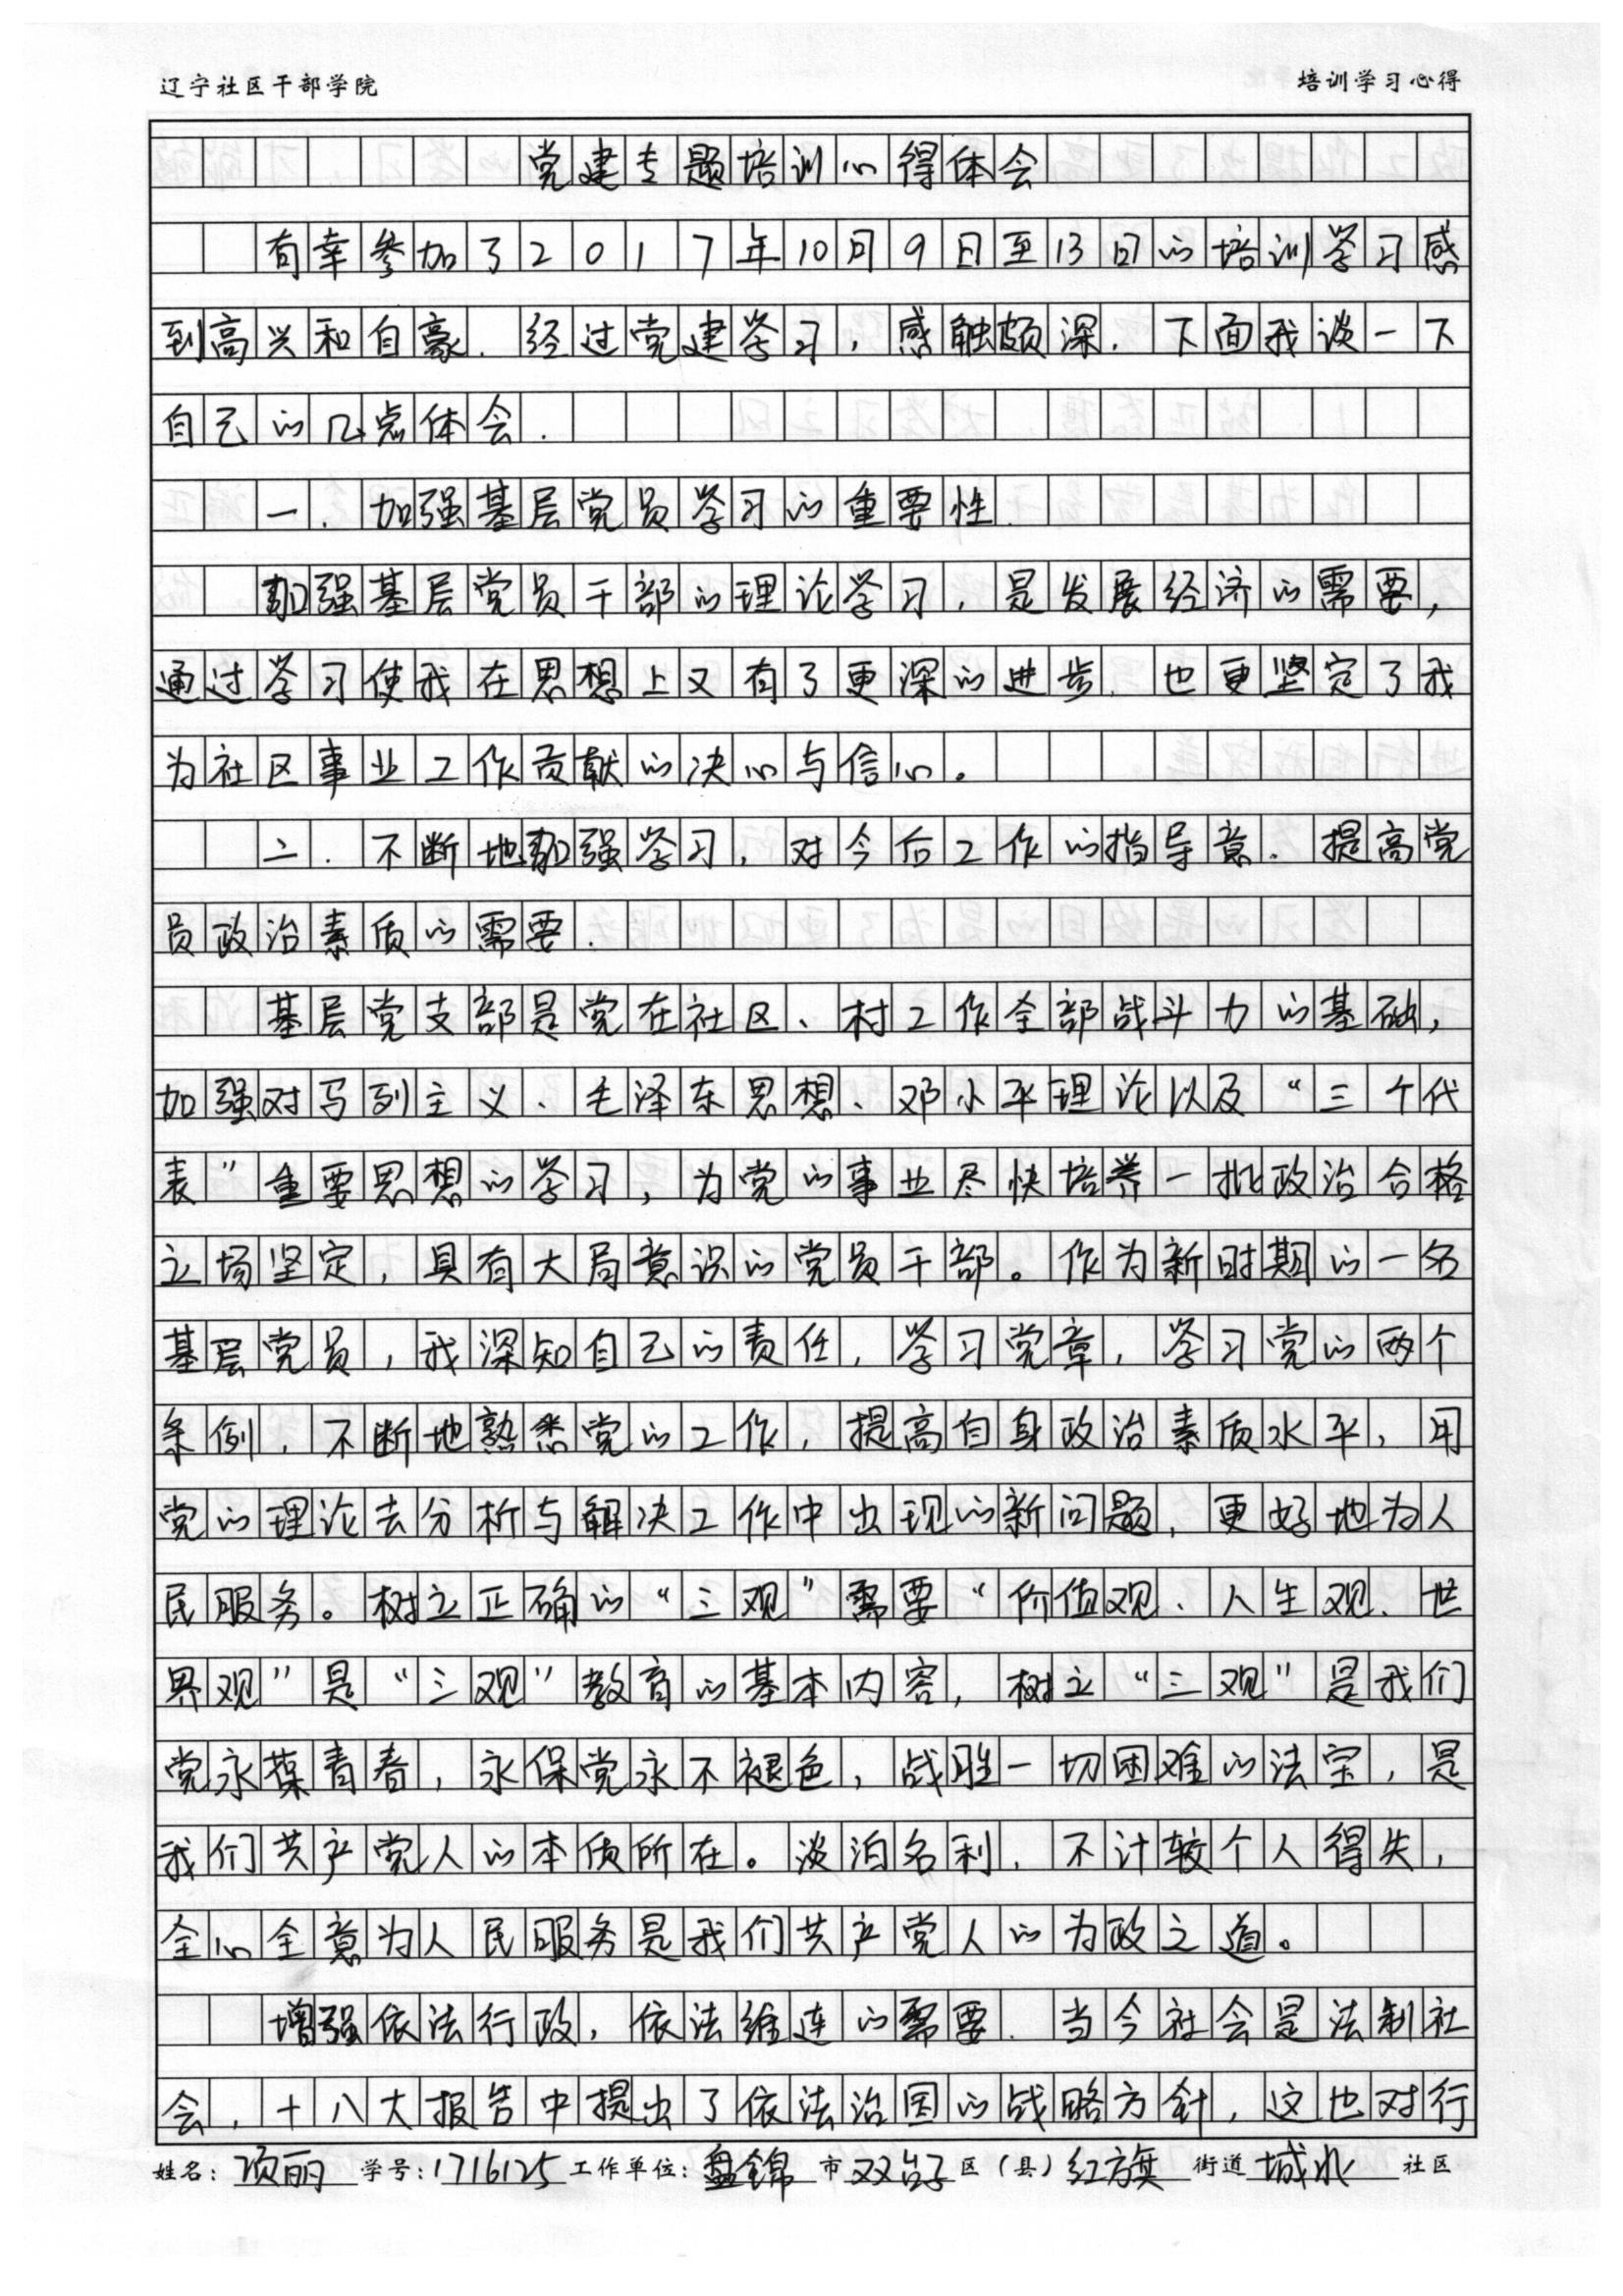 辽宁社区干部学院 培训学习心得
党建专题培训心得体会
有幸参加了2017年10月9日至13日的培训学习感
到高兴和自豪.经过党建学习,感触颇深.下面我谈一下
自己的几点体会.
一.加强基层党员学习的重要性.
加强基层党员干部的理论学习,是发展经济的需要,
通过学习使我在思想上又有了更深的进步.也更坚定了我
为社区事业工作贡献的决心与信心。
二.不断地加强学习,对今后工作的指导意.提高党
员政治素质的需要.
基层党支部是党在社区、村工作全部战斗力的基础,
加强对马列主义、毛泽东思想、邓小平理论以及“三个代
表”重要思想的学习,为党的事业尽快培养一批政治合格
立场坚定,具有大局意识的党员干部。作为新时期的一名
基层党员,我深知自己的责任,学习党章,学习党的两个
条例,不断地熟悉党的工作,提高自身政治素质水平,用
党的理论去分析与解决工作中出现的新问题,更好地为人
民服务。树立正确的“三观”需要“价值观、人生观、世
界观”是“三观”教育的基本内容,树立“三观”是我们
党永葆青春,永保党永不褪色,战胜一切困难的法宝,是
我们共产党人的本质所在。淡泊名利,不计较个人得失,
全心全意为人民服务是我们共产党人的为政之道。
增强依法行政,依法维连的需要.当今社会是法制社
会,十八大报告中提出了依法治国的战略方针,这也对行
姓名:项丽 学号:1716125 工作单位:盘锦市双台子区(县)红旗街道城北社区